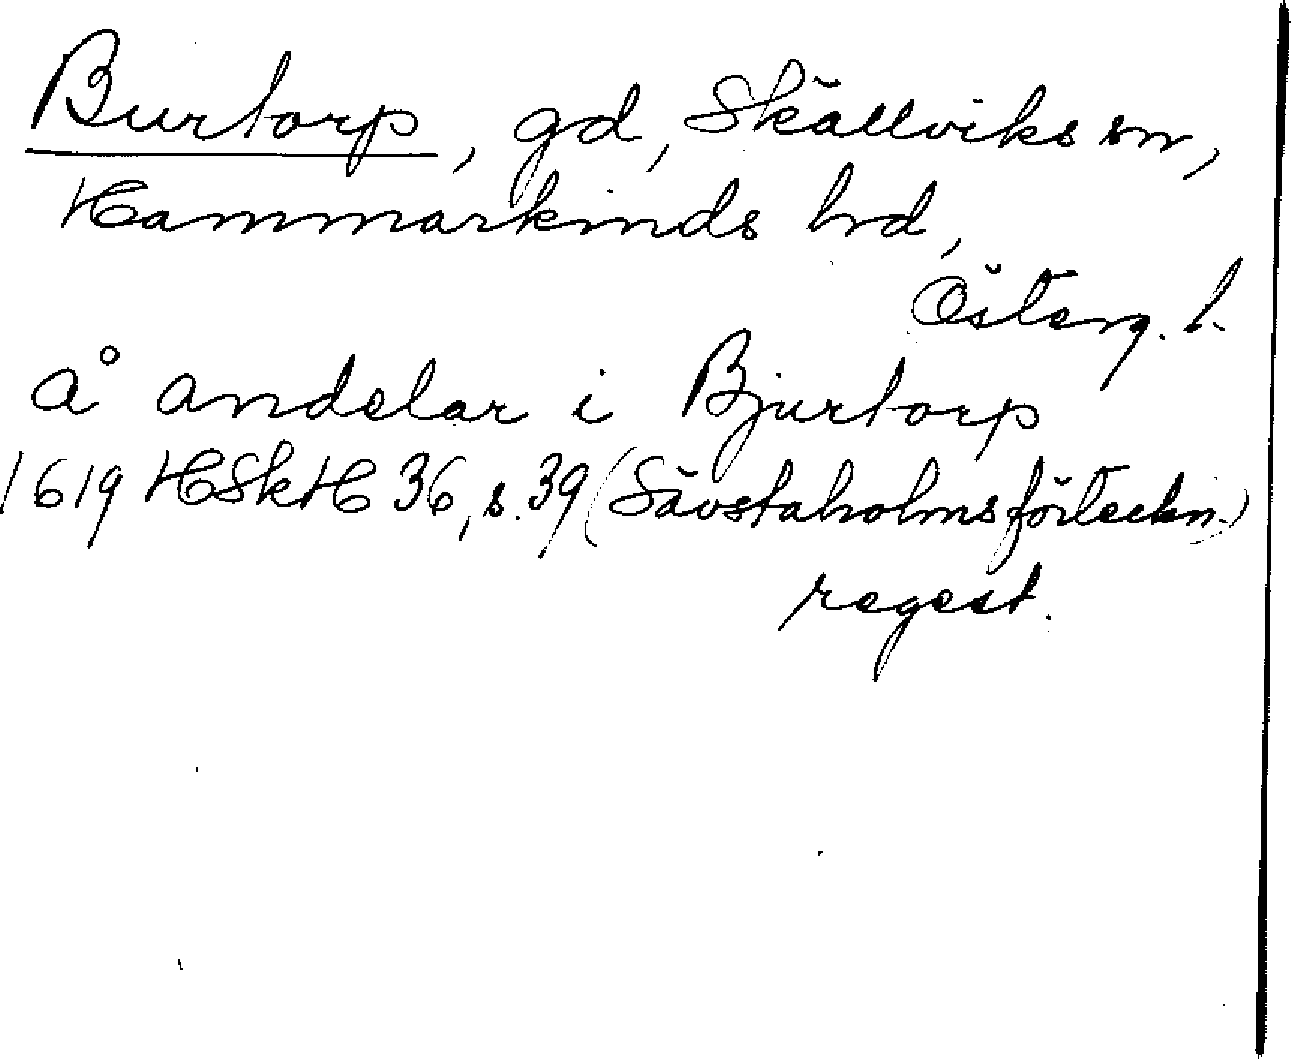 Burtorp, gd, Skällviks sn,
Hammarkinds hrd,
Österg. l.
å andelar i Bjurtorp
1619 HSkH 36, s. 39 (Sävstaholmsförteckn.)
regest.